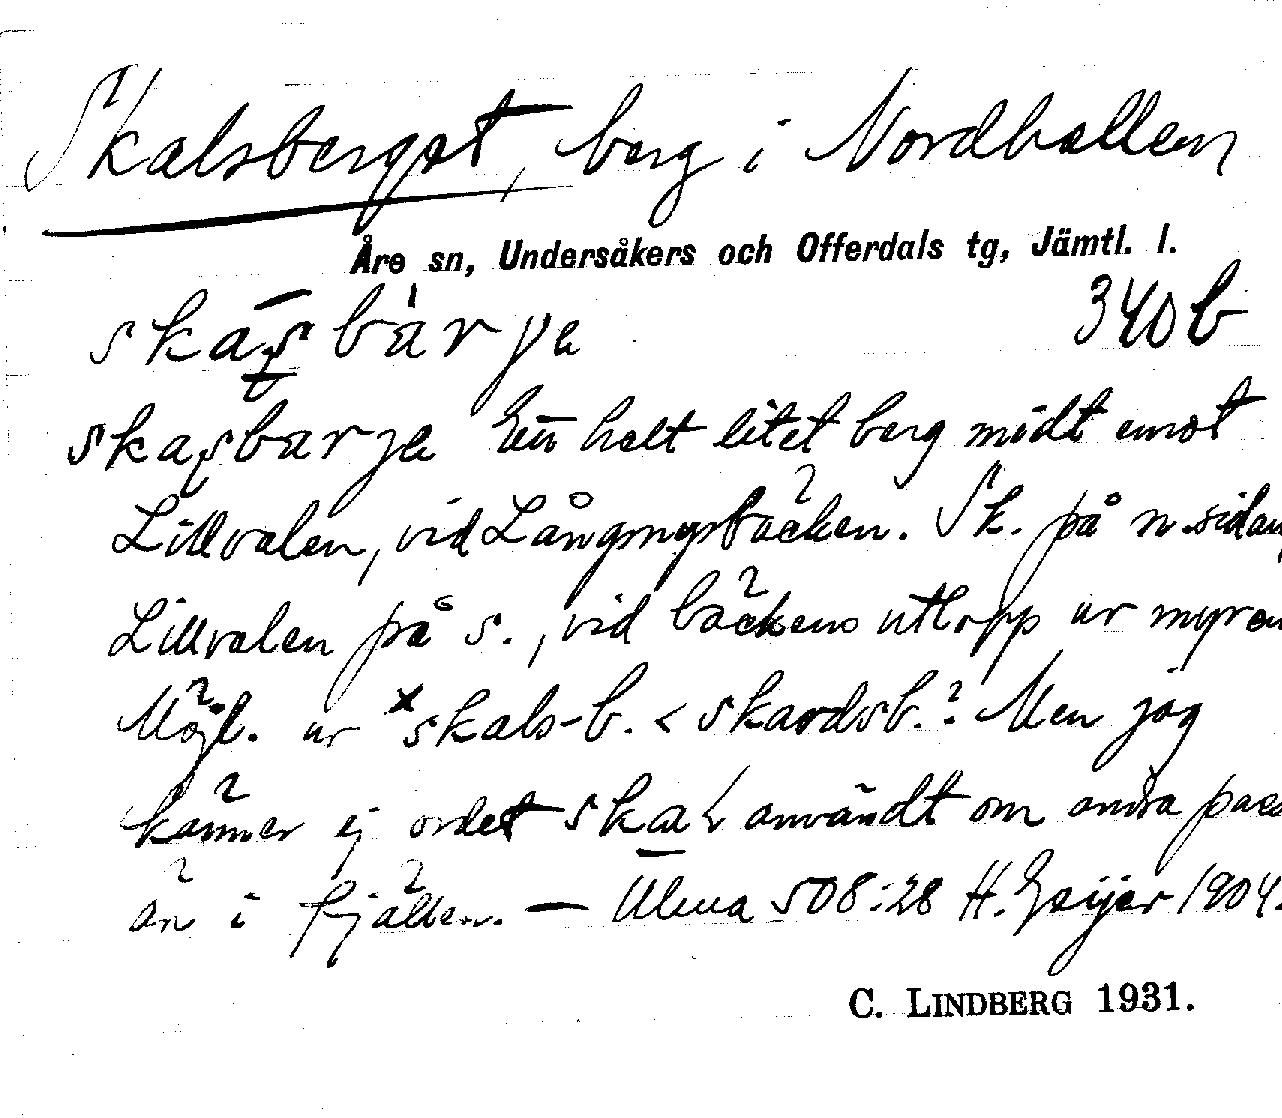 Skalsberget, berg i Nordhallen
Åre sn, Undersåkers och Offerdals tg, Jämtl. l.
340b
Ett helt litet berg midt emot
Lillvalen, vid Långmyrbäcken. Sk. på n. sidan,
Lillvalen på s., vid bäckens utlopp ur myren
Möjl. ur *skals-b. < skardsb.? Men jag
känner ej ordet användt om andra pass
än i fjällen. — Ulma 508:28 H. Geijer 1904.
C. LINDBERG 1931.